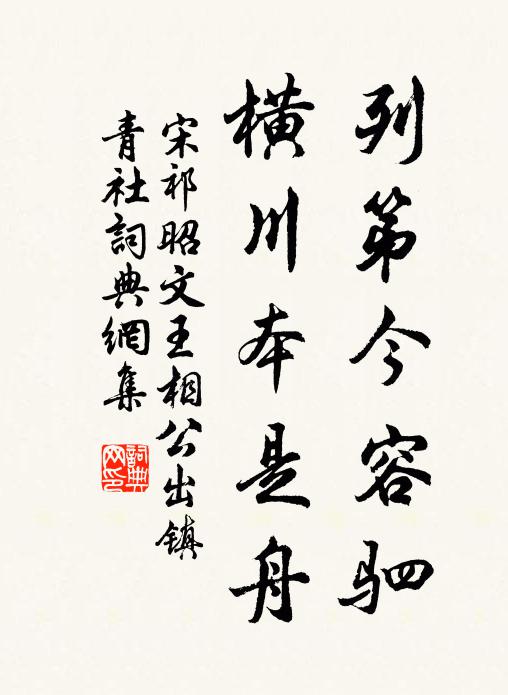 列第今容驷
橫川本是舟
宋祁昭文王相公出镇
青社詞典網集
詞典
网印